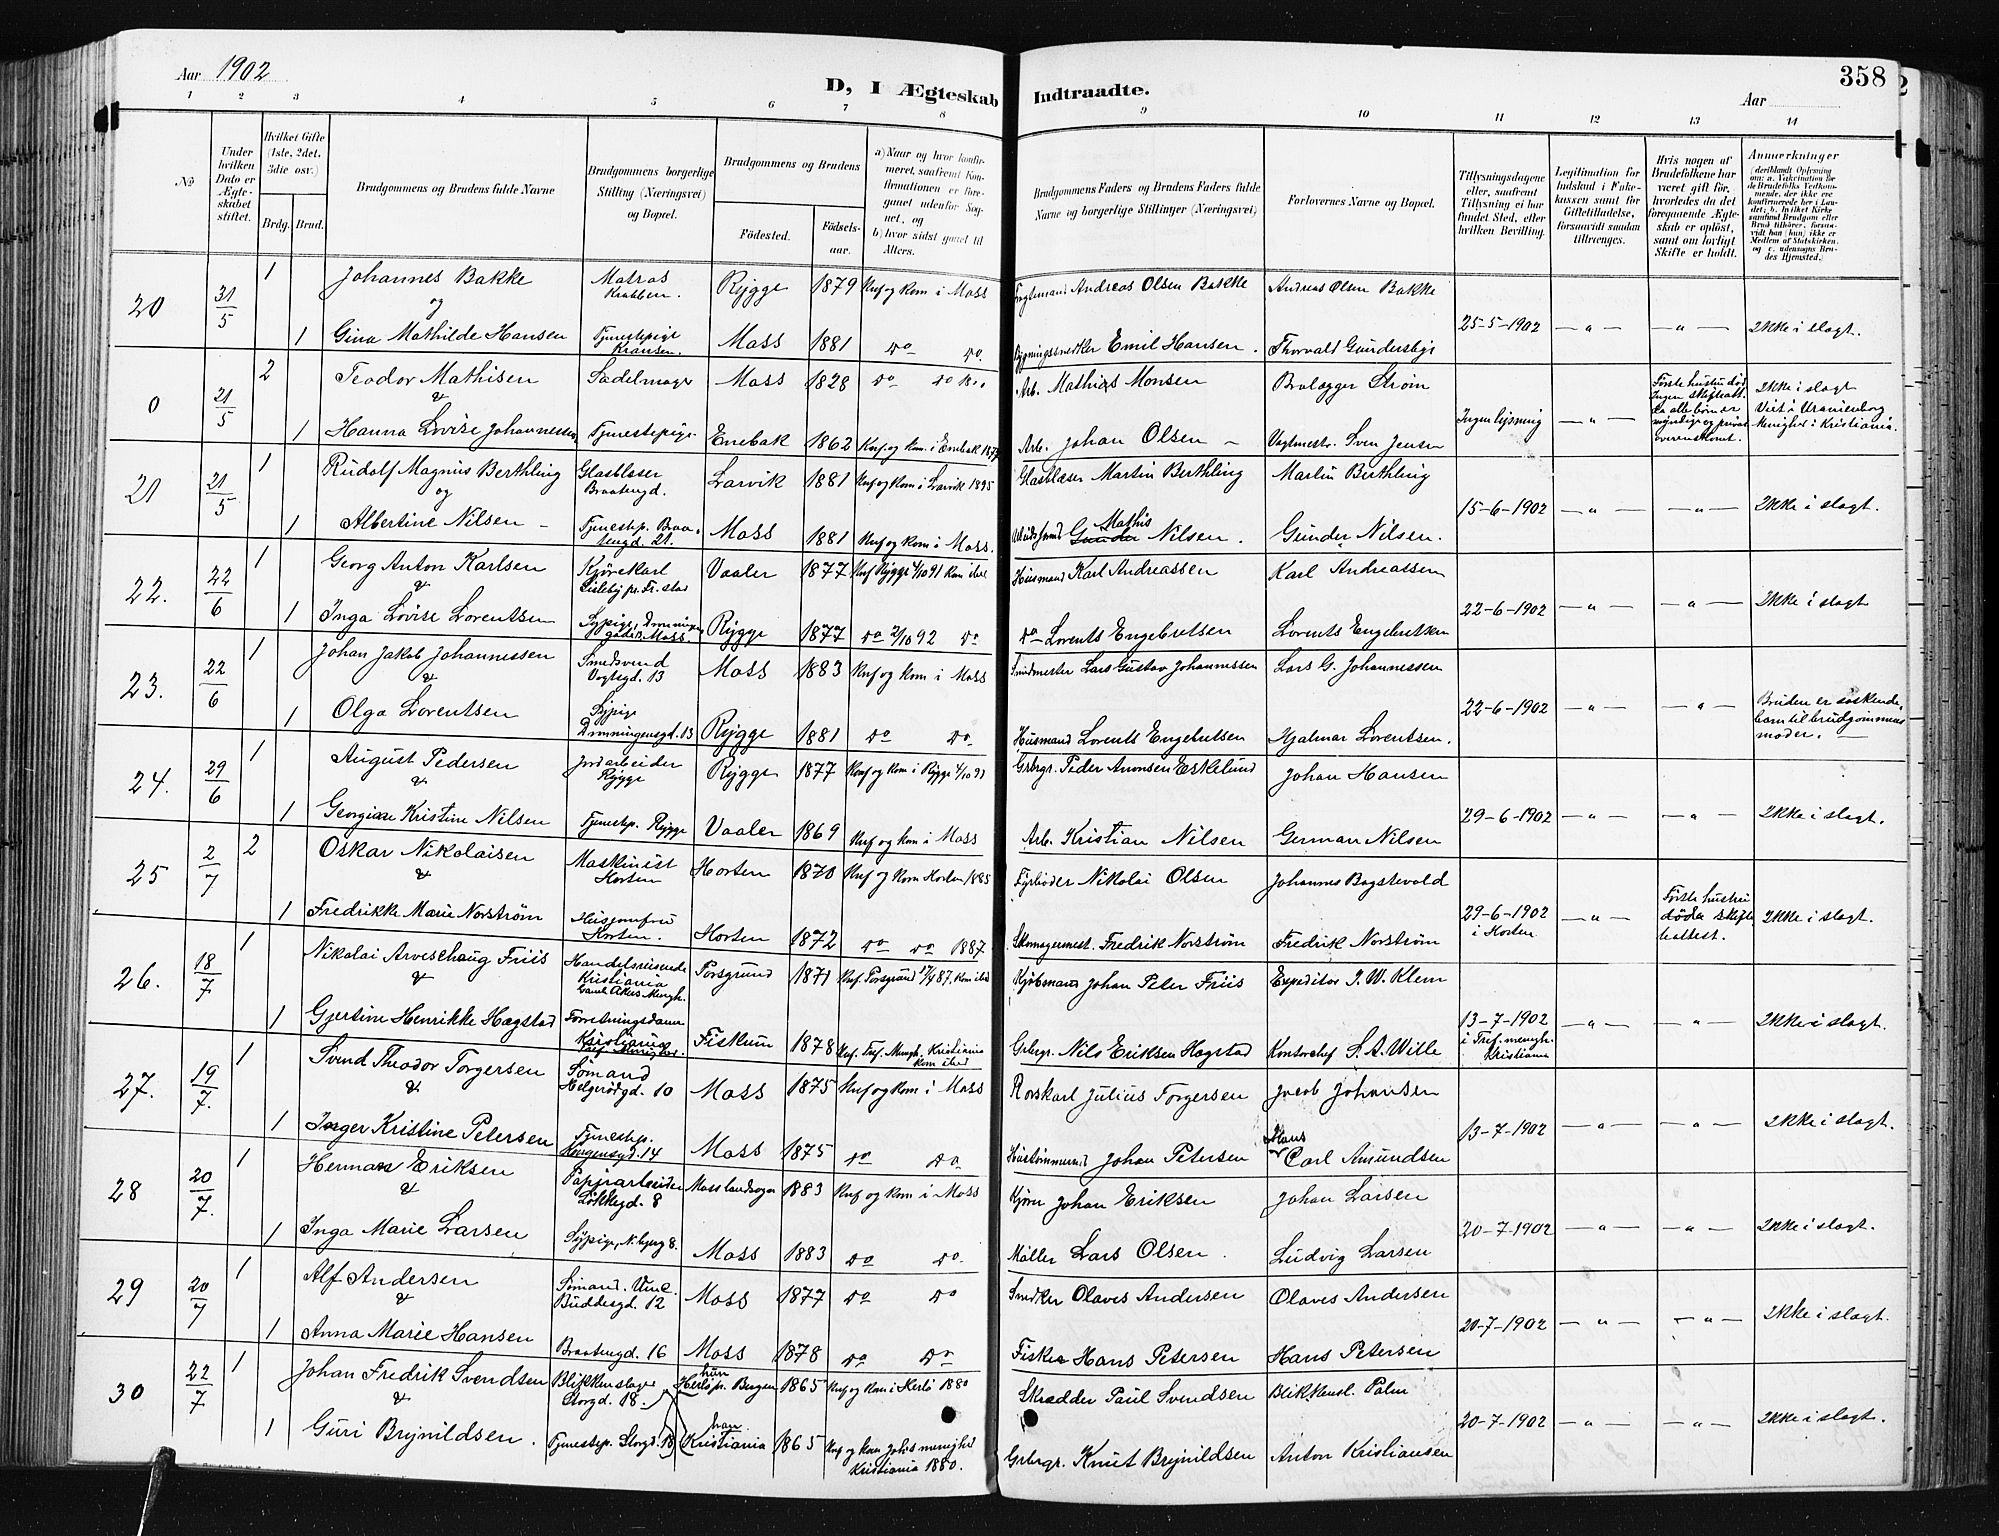 Aar 1902
D, I Ægteskab Indtraadte.
Aar
358
1 2 3 4 5 6 7 8 9 10 11 12 13 14
No
Under hvilken Dato er Ægteskabet stiftet.
Hvilket Gifte (1ste, 2det, 3die osv.)
Brdg. Brud.
Brudgommens og Brudens fulde Navne
Brudgommens borgerlige Stilling (Næringsvei) og Bopæl.
Brudgommens og Brudens
Fødested.
Fødselsaar.
a) Naar og hvor konfirmeret, saafremt Konfirmationen er foregaaet udenfor Sognet, og
b) hvor sidst gaaet til Alters.
Brudgommens Faders og Brudens Faders fulde Navne og borgerlige Stillinger (Næringsvei)
Forlovernes Navne og Bopæl.
Tillysningsdagene eller, saafremt Tillysning ei har fundet Sted, efter hvilken Bevilling.
Legitimation for Indskud i Enkekassen samt for Giftetilladelse, forsaavidt saadan tiltrænges.
Hvis nogen af Brudefolkene har været gift før, hvorledes da det foregaaende Ægteskab er opløst, samt om lovligt Skifte er holdt.
Anmærkninger
20 31/5 1 Johannes Bakke Matros Krabben. Rygge 1879 Knf og kom i Moss Andreas Olsen Bakke Andreas Olsen Bakke
og 25-5-1902 —„— —„— Ikke i slagt.
1 Gina Mathilde Hansen Tjenestepige Kransen. Moss 1881 Do Do. Emil Hansen. Thorvald Gundersby
0 21/5 2 Teodor Mathisen Sadelmager Moss 1828 Do Arb. Mathias Monsen Brolægger Strøm
& Ingen lysning —„— Første hustru død Ikke i slagt
Viet i Uranienborg Menighed i Kristiania.
1 Hanna Lovise Johannessen Tjenestepige Enebak 1862 Knf. og kom. i Enebak Arb. Johan Olsen — Vagtmestr. Sven Jensen
21 21/5 1 Rudolf Magnus Berthling Glasblæser Braatengd. Larvik 1881 Knf og kom i Larvik 1895 Glasblæser Martin Berthling Martin Berthling
og 15-6-1902 —„— —„— Ikke i slagt.
1 Albertine Nilsen — Tjenestep. Braatengd. 21. Moss 1881 Knf og kom i Moss. Mathis Gunder Nilsen. Gunder Nilsen.
22. 22/6 1 Georg Anton Karlsen Kjørekarl Lisleby pr. Fr.stad Vaaler 1877 Knf Rygge 4/10 91 kom ibid Husmand Karl Andreassen Karl Andreassen
& 22-6-1902 —„— —„— Ikke i slagt
1 Inga Lovise Lorentsen Sypige, Dronningensgade 13 Moss Rygge 1877 Do 2/10 92 Do Do Lorents Engebretsen Lorents Engebretsen
23. 22/6 1 Johan Jakob Johannessen Smedsvend Vogtsgd. 13 Moss 1883 Knf og kom i Moss Smedmester Lars Gustav Johannessen Lars G. Johannessen
& 22-6-1902 —„— —„— Bruden er søskendebarn til brudgommens moder. —
1 Olga Lorentsen Sypige Dronningensgd. 13 Rygge 1881 Do Do. Husmand Lorents Engebretsen Hjalmar Lorentsen.
24. 29/6 1 August Pedersen Jordarbeider Rygge Rygge 1877 Konf og kom i Rygge Grbrgr. Peder Aronsen Eskelund Johan Hansen
& 29-6-1902 —„— —„— Ikke i slagt.
1 Georgine Kristine Nilsen Tjenestep. Rygge Vaaler 1869 Knf og kom i Moss Arb. Kristian Nilsen German Nilsen
25 2/7 2 Oskar Nikolaisen Maskinist Horten Horten 1870 Knf og kom Horten 1885 Fyrbøder Nikolai Olsen Johannes Bogstevold
& 29-6-1902 i Horten —„— Første hustru døde skifteattest. Ikke i slagt.
1 Fredrikke Marie Norstrøm Husjomfru Horten. Horten 1872 Do Do 1887 Skomagermest. Fredrik Norstrøm Fredrik Norstrøm
26. 18/7 1 Nikolai Arveschaug Friis Handelsreisende Kristiania Gamle Akers Mengh. Porsgrund 1871 Knf. Porsgrund 17/4 87. kom ibid Kjøbmand Johan Peter Friis Expeditør I. W. Klem
& 13-7-1902 i Tref. mengh. Kristiania —„— —„— Ikke i slagt.
1 Gjertine Henrikke Hægstad Forretningsdame Kristiania Tref. Menighed. Fiskum 1878 Knf. Tref. Mengh. Kristiania kom ibid Grbrgr. Nils Eriksen Hagstad Kontorchef S. A. Wille
27. 19/7. 1 Svend Theodor Torgersen Sømand Helgerødgd. 10 Moss 1875 Knf og kom i Moss Rorskarl Julius Torgersen Jacob Johansen
& 13-7-1902 —„— —„— Ikke i slagt.
1 Inger Kristine Petersen Tjenestep. 14 Moss 1875 Do Do. Hustømmermd Johan Petersen Hans Carl Amundsen
28 20/7. 1 Herman Eriksen Papirarbeider Løkkegd. 8 Moss landsogn 1883 Knf og kom i Moss Kjører Johan Eriksen Johan Larsen
& 20-7-1902 —„— —„— Ikke i slagt.
1 Inga Marie Larsen Sypige, N. bjerg 8. Moss 1883 Do Do. Møller Lars Olsen. Ludvig Larsen
29 20/7 1 Alf Andersen Sømand. Vinc. Buddesgd. 12 Moss 1877 Do Do Snedker Olaves Andersen Olaves Andersen
& 20-7-1902 —„— —„— Ikke i slagt.
1 Anna Marie Hansen Braatengd. 16 Moss 1878 Do Do Fisker Hans Petersen Hans Petersen
30 22/7 1 Johan Fredrik Svendsen Blikkenslager Storgd. 18. hun Herlø pr. Bergen 1865 Knf og kom i Herlø 1880 Skrædder Paul Svendsen Blikkensl. Palm
& 20-7-1902 —„— —„— Ikke i slagt.
1 Guri Brynildsen. Tjenestep. Storgd. 18 han Kristiania 1865 Knf og kom Johs menighed Kristiania 1880. Grbrgr. Knut Brynildsen Anton Kristiansen